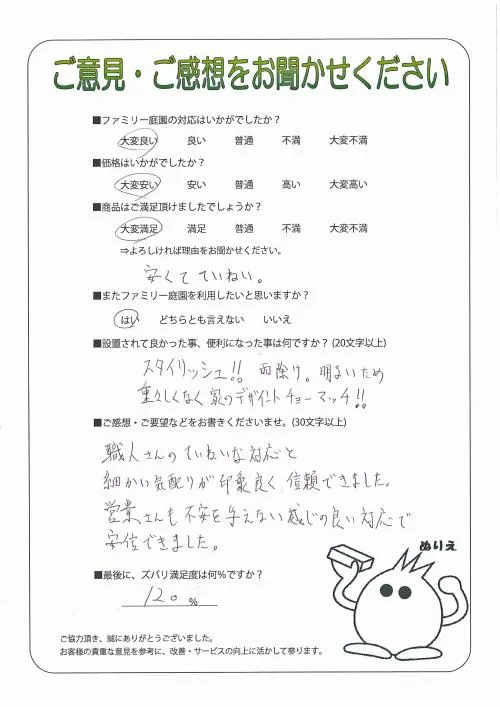 ご意見・ご感想をお聞かせください
■ファミリー庭園の対応はいかがでしたか？
大変良い 良い 普通 不満 大変不満
■価格はいかがでしたか？
大変安い 安い 普通 高い 大変高い
■商品はご満足頂けましたでしょうか？
大変満足 満足 普通 不満 大変不満
⇒よろしければ理由をお聞かせください。
安くて ていねい。
■またファミリー庭園を利用したいと思いますか？
はい どちらとも言えない いいえ
■設置されて良かった事、便利になった事は何ですか？ (20文字以上)
スタイリッシュ!! 雨除け。明るいため
重々しくなく 家のデザイントチョーマッチ!!
■ご感想・ご要望などをお書きくださいませ。(30文字以上)
職人さんのていねいな対応と
細かい気配りが印象良く、信頼できました。
営業さんも不安を与えない感じの良い対応で
安信できました。
ぬりえ
■最後に、ズバリ満足度は何％ですか？
120 %
ご協力頂き、誠にありがとうございました。
お客様の貴重な意見を参考に、改善・サービスの向上に活かして参ります。